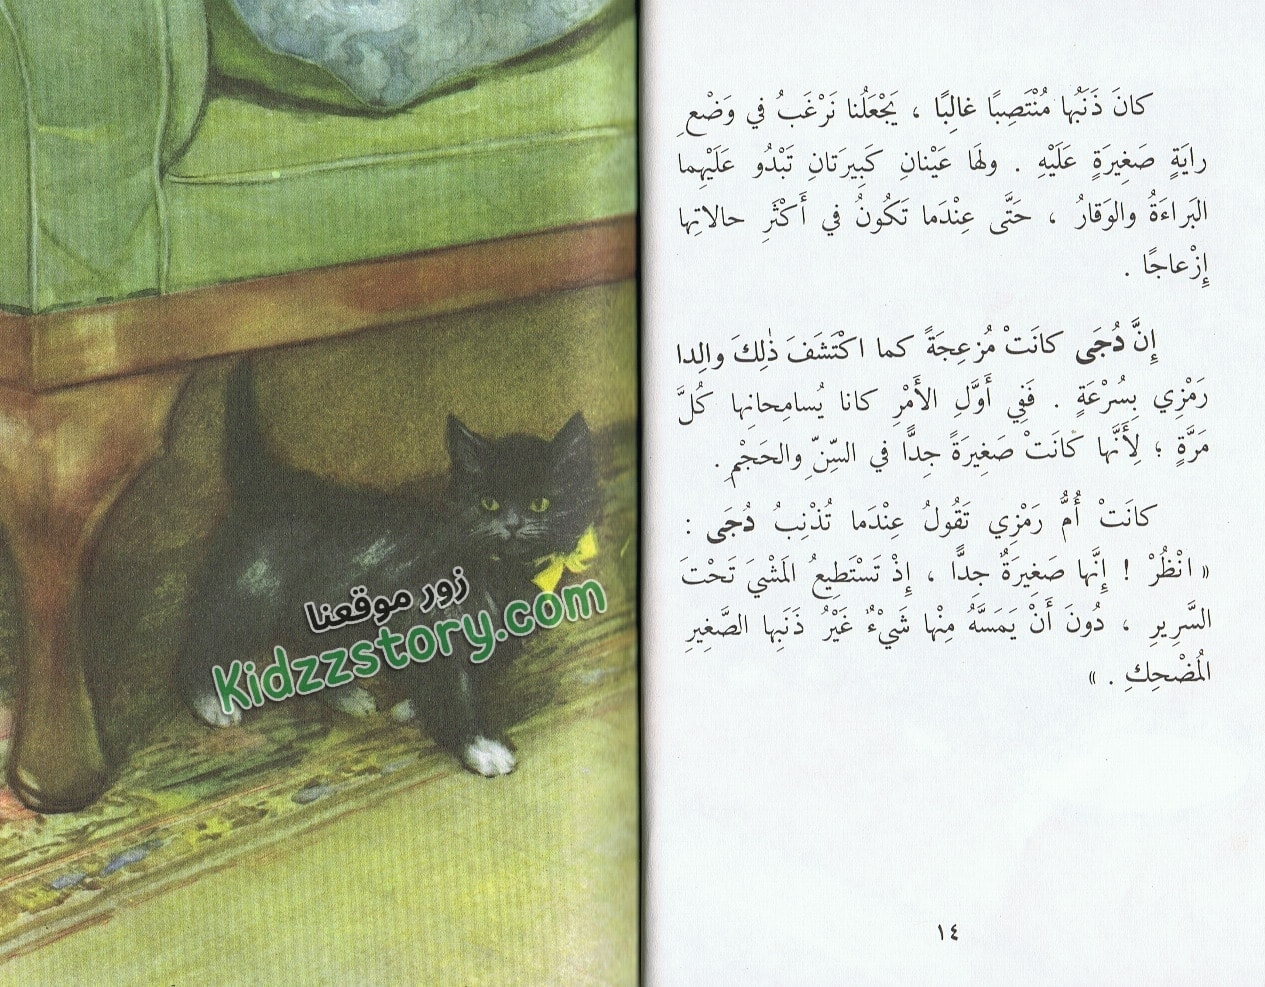 كانَ ذَنَبُها مُنْتَصِبًا غالِبًا ، يَجْعَلُنا نَرْغَبُ في وَضْعِ
رايَةٍ صَغِيرَةٍ عَلَيْهِ . ولَها عَيْنانِ كَبِيرَتانِ تَبْدُو عَلَيْهِما
البَراءَةُ والوَقارُ ، حَتَّى عِنْدَما تَكُونُ في أَكْثَرِ حالاتِها
إِزْعاجًا .
إِنَّ دُجَى كانَتْ مُزعِجَةً كما اكْتَشَفَ ذٰلِكَ والِدا
رَمْزِي بِسُرْعَةٍ . فَفِي أَوَّلِ الأَمْرِ كانا يُسامِحانِها كُلَّ
مَرَّةٍ ؛ لِأَنَّها كانَتْ صَغِيرَةً جِدًّا في السِّنِّ والحَجْمِ .
كانَتْ أُمُّ رَمْزِي تَقُولُ عِنْدَما تُذْنِبُ دُجَى :
« انْظُرْ ! إِنَّها صَغِيرَةٌ جِدًّا ، إِذْ تَسْتَطِيعُ المَشْيَ تَحْتَ
السَّرِيرِ ، دُونَ أَنْ يَمَسَّهُ مِنْها شَيْءٌ غَيْرُ ذَنَبِها الصَّغِيرِ
المُضْحِكِ . »
١٤
زور موقعنا
Kidzzstory.com